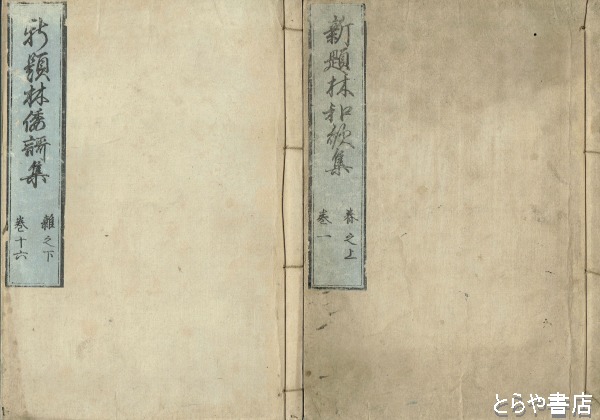 新題林和歌集
春之上
巻一
新題林倭謌集
雜之下
巻十六
とらや書店